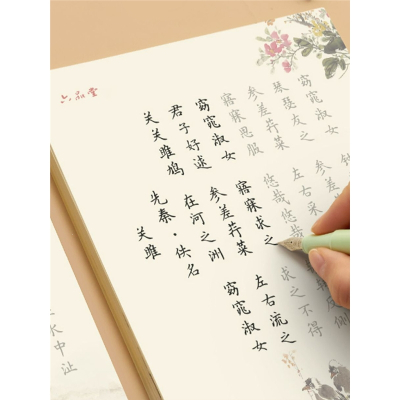 六品堂
关雎
先秦·佚名
关关雎鸠 在河之洲 窈窕淑女
君子好逑 参差荇菜 左右流之
窈窕淑女 寤寐求之 求之不得
寤寐思服 悠哉悠哉 反侧
参差荇菜 左右采之
琴瑟友之
窈窕淑女
水中沚